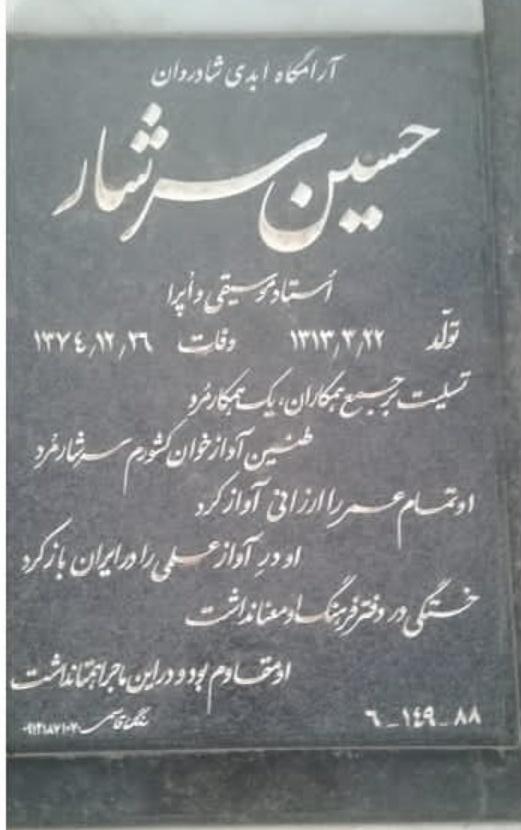 آرامگاه ابدی شادروان
حسین سرشار
اُستاد موسیقی و اُپرا
تولّد ۱۳۱۳٫۳٫۲۲ وفات ۱۳۷٤٫۱۲٫۲٦
تسلیت بر جمیع همکاران، یک همکار مُرد
طنین آواز خوان کشورم سرشار مُرد
او تمام عمر را ارزانی آواز کرد
او درِ آواز علمی را در ایران باز کرد
خستگی در دفتر فرهنگ او معنا نداشت
او مقاوم بود و در این ماجرا همتا نداشت
۸۸_۱٤۹_٦
سنگ قاسمی